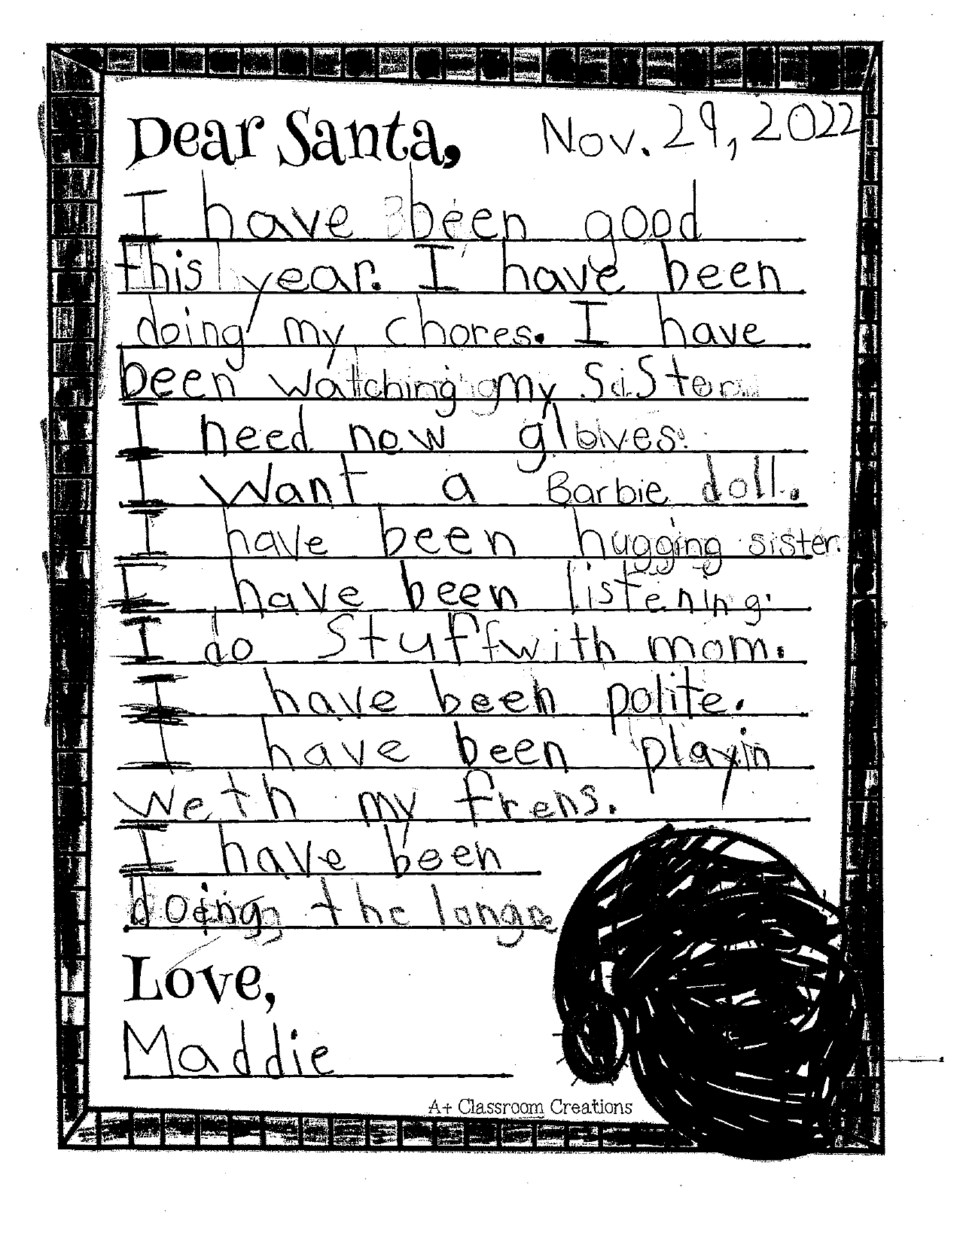 Dear Santa, Nov. 29, 2022
I have been good
this year. I have been
doing my chores. I have
been watching my sister.
I need now gloves.
I want a Barbie doll.
I have been hugging sister.
I have been listening.
I do stuff with mom.
I have been polite.
I have been playin
weth my frens.
I have been
doing the longe
Love,
Maddie
A+ Classroom Creations